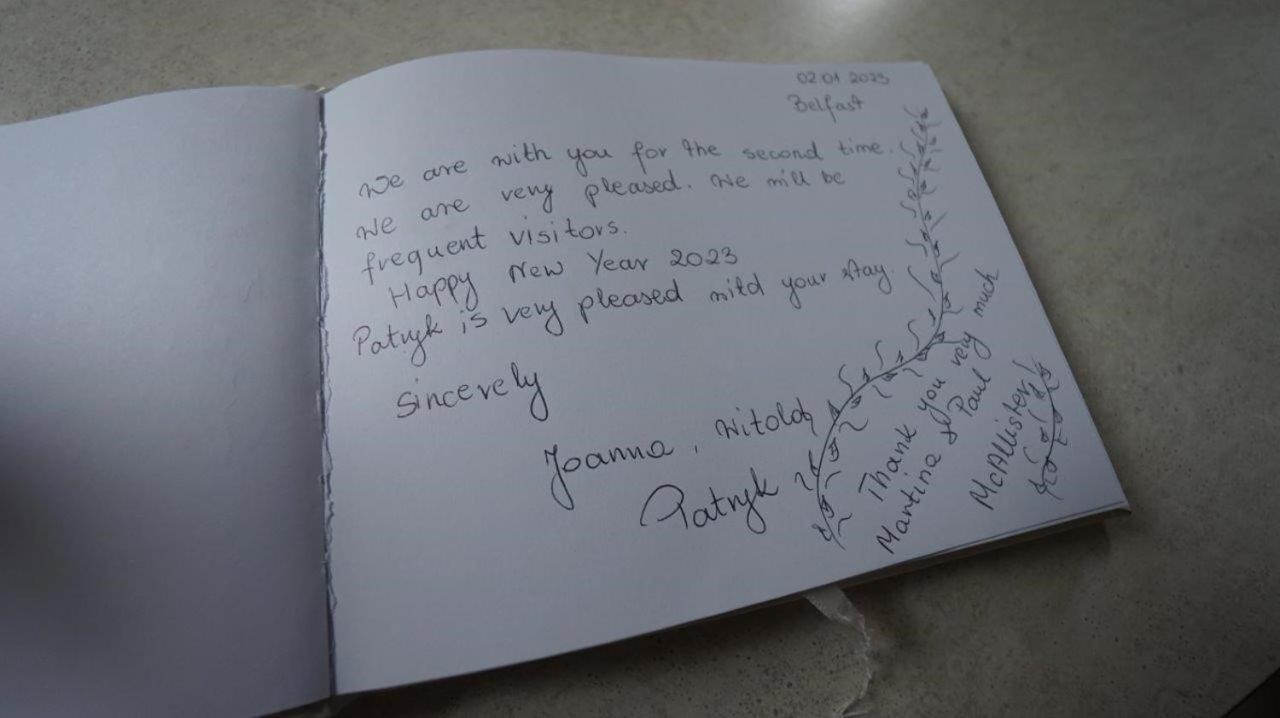 02.01 2023
Belfast
We are with you for the second time.
We are very pleased. We will be
frequent visitors.
Happy New Year 2023
Patryk is very pleased mitd your stay.
Sincerely
Joanna, Witold,
Patryk
Thank you very much
Martina & Paul
McAllister!